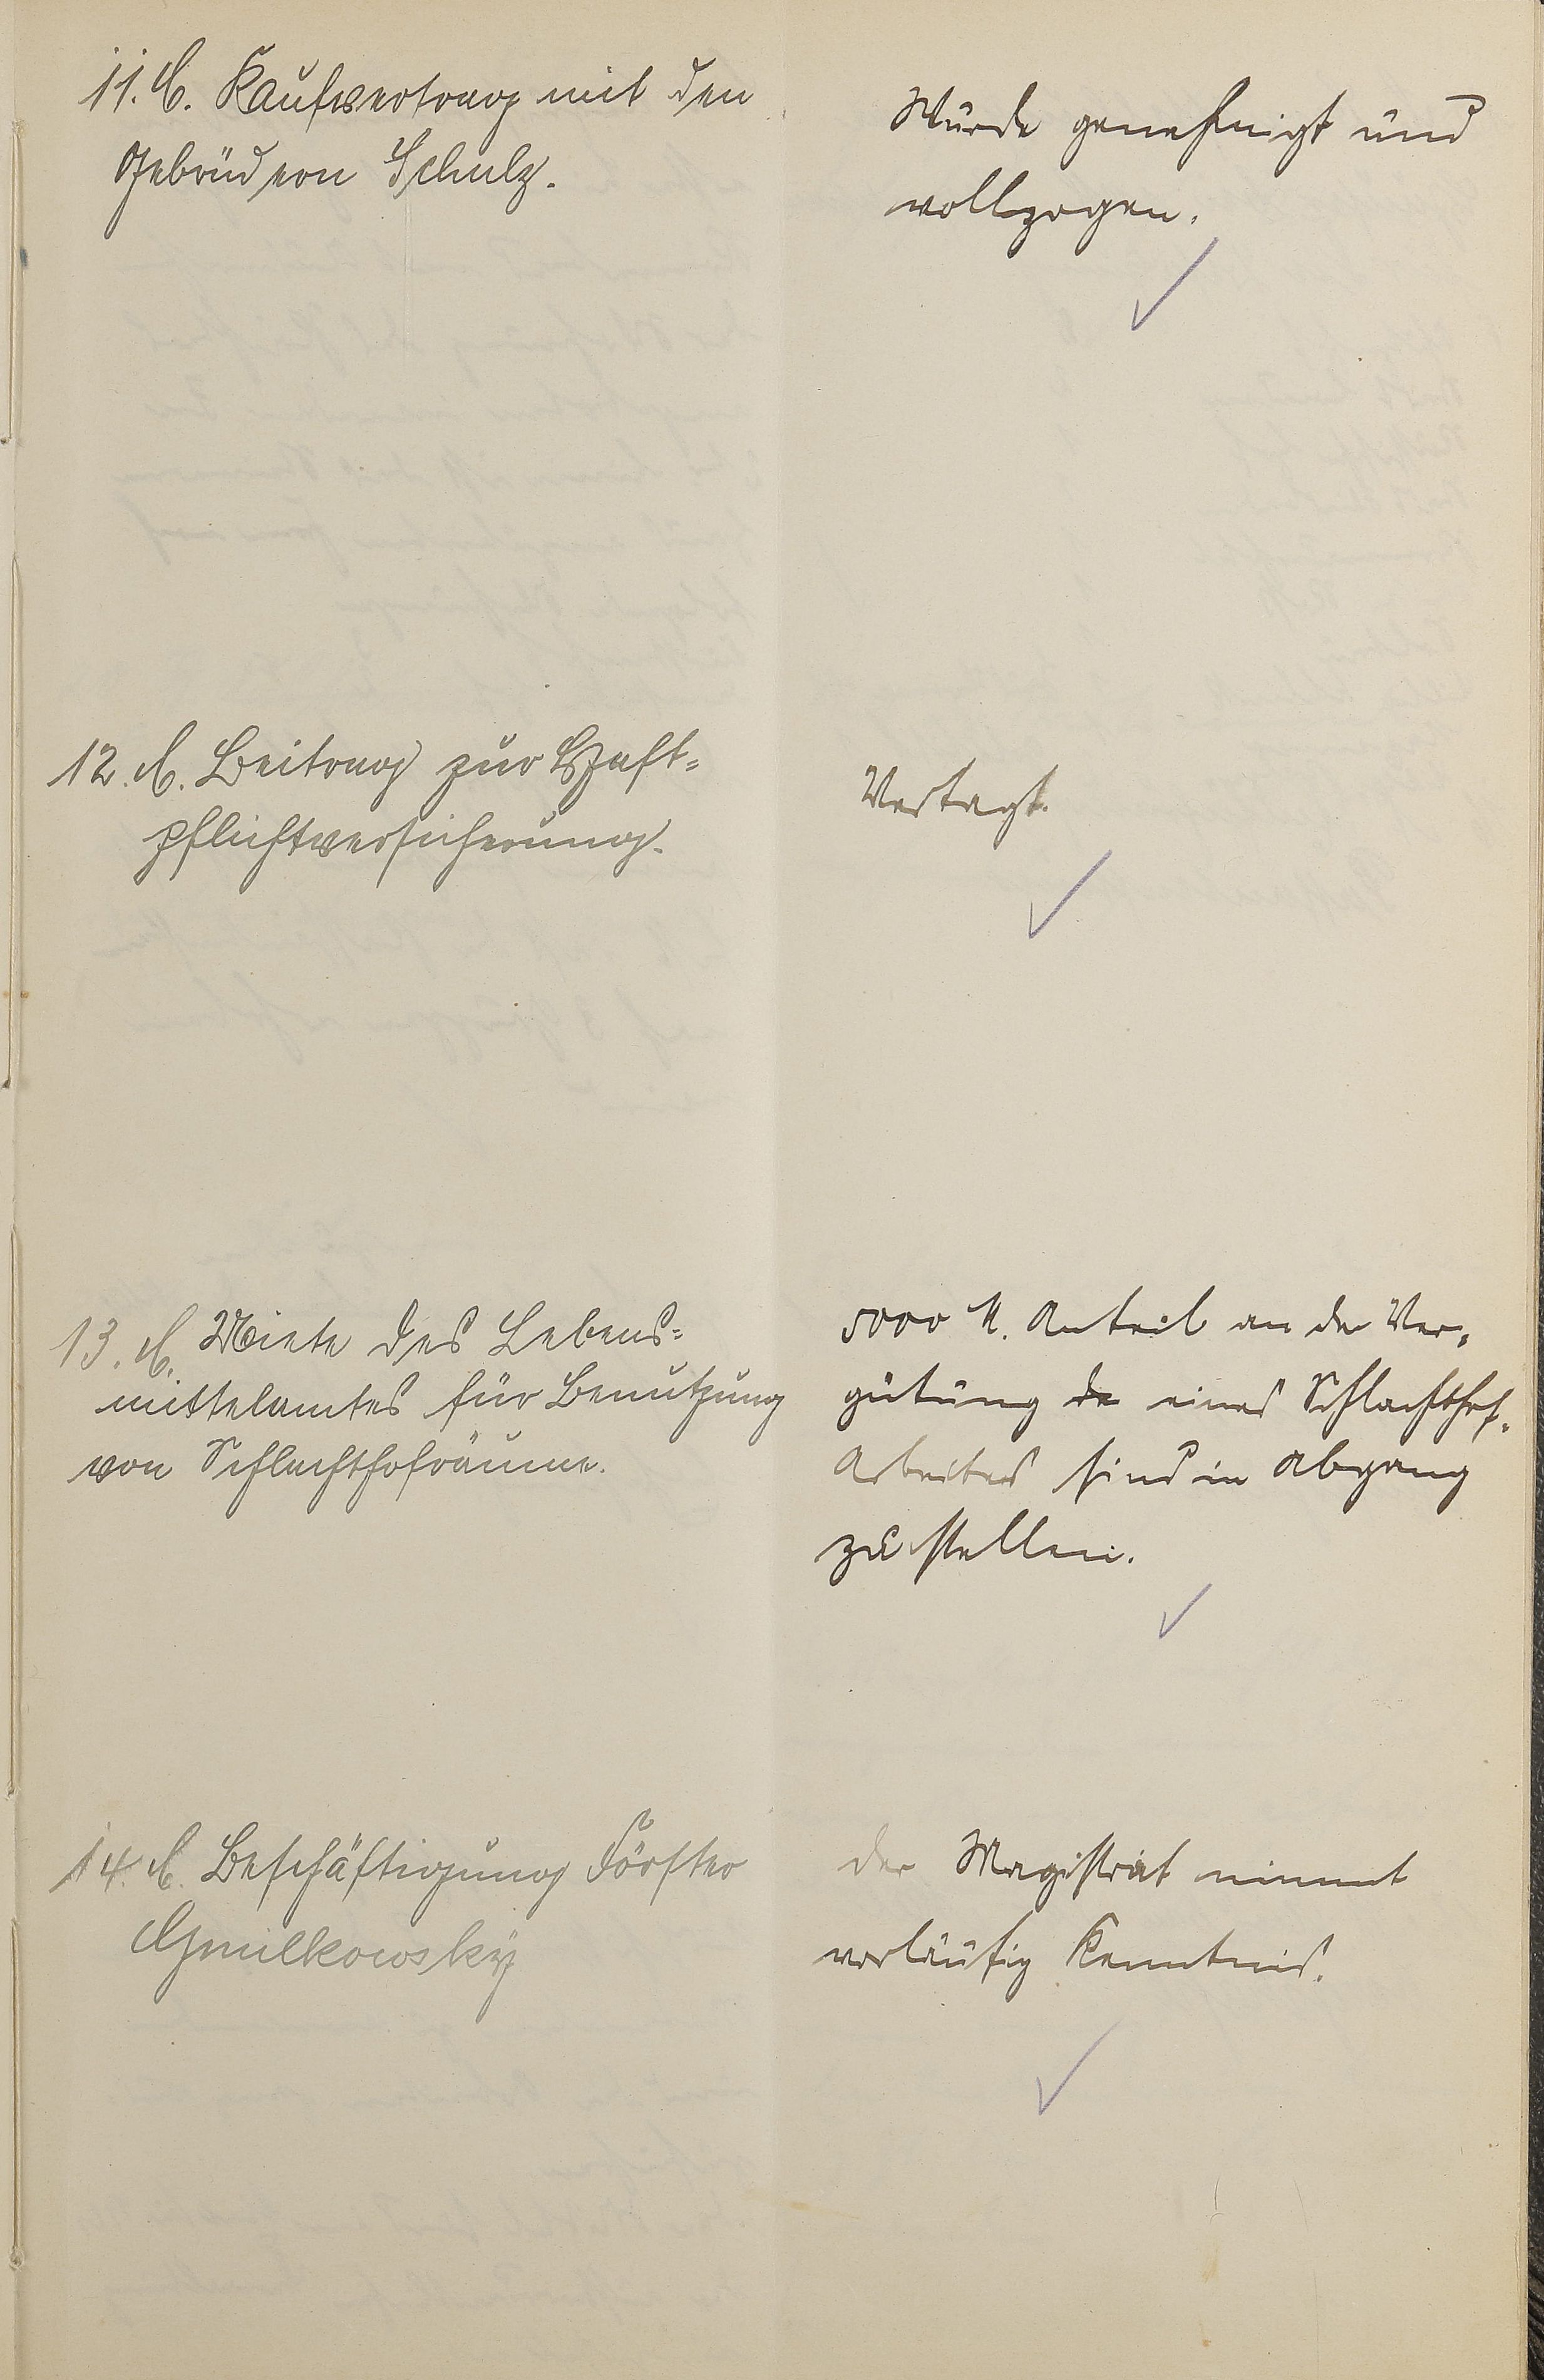 11. C. Kaufvertrag mit den
Gebrüdern Schulz.
Wurde genehmigt und
vollzogen.
12. C. Beitrag zur Haft-
pflichtversicherung.
Vertagt.
13. C. Miete des Lebens-
mittelamtes für Benutzung
von Schlachthofräume.
5000 M. Anteil an der Ver-
gütung de eines Schlachthof-
Arbeiters sind in Abgang
zu stellen.
14. C. Beschäftigung Förster
Gmilkowsky
Der Magistrat nimmt
vorläufig Kenntnis.